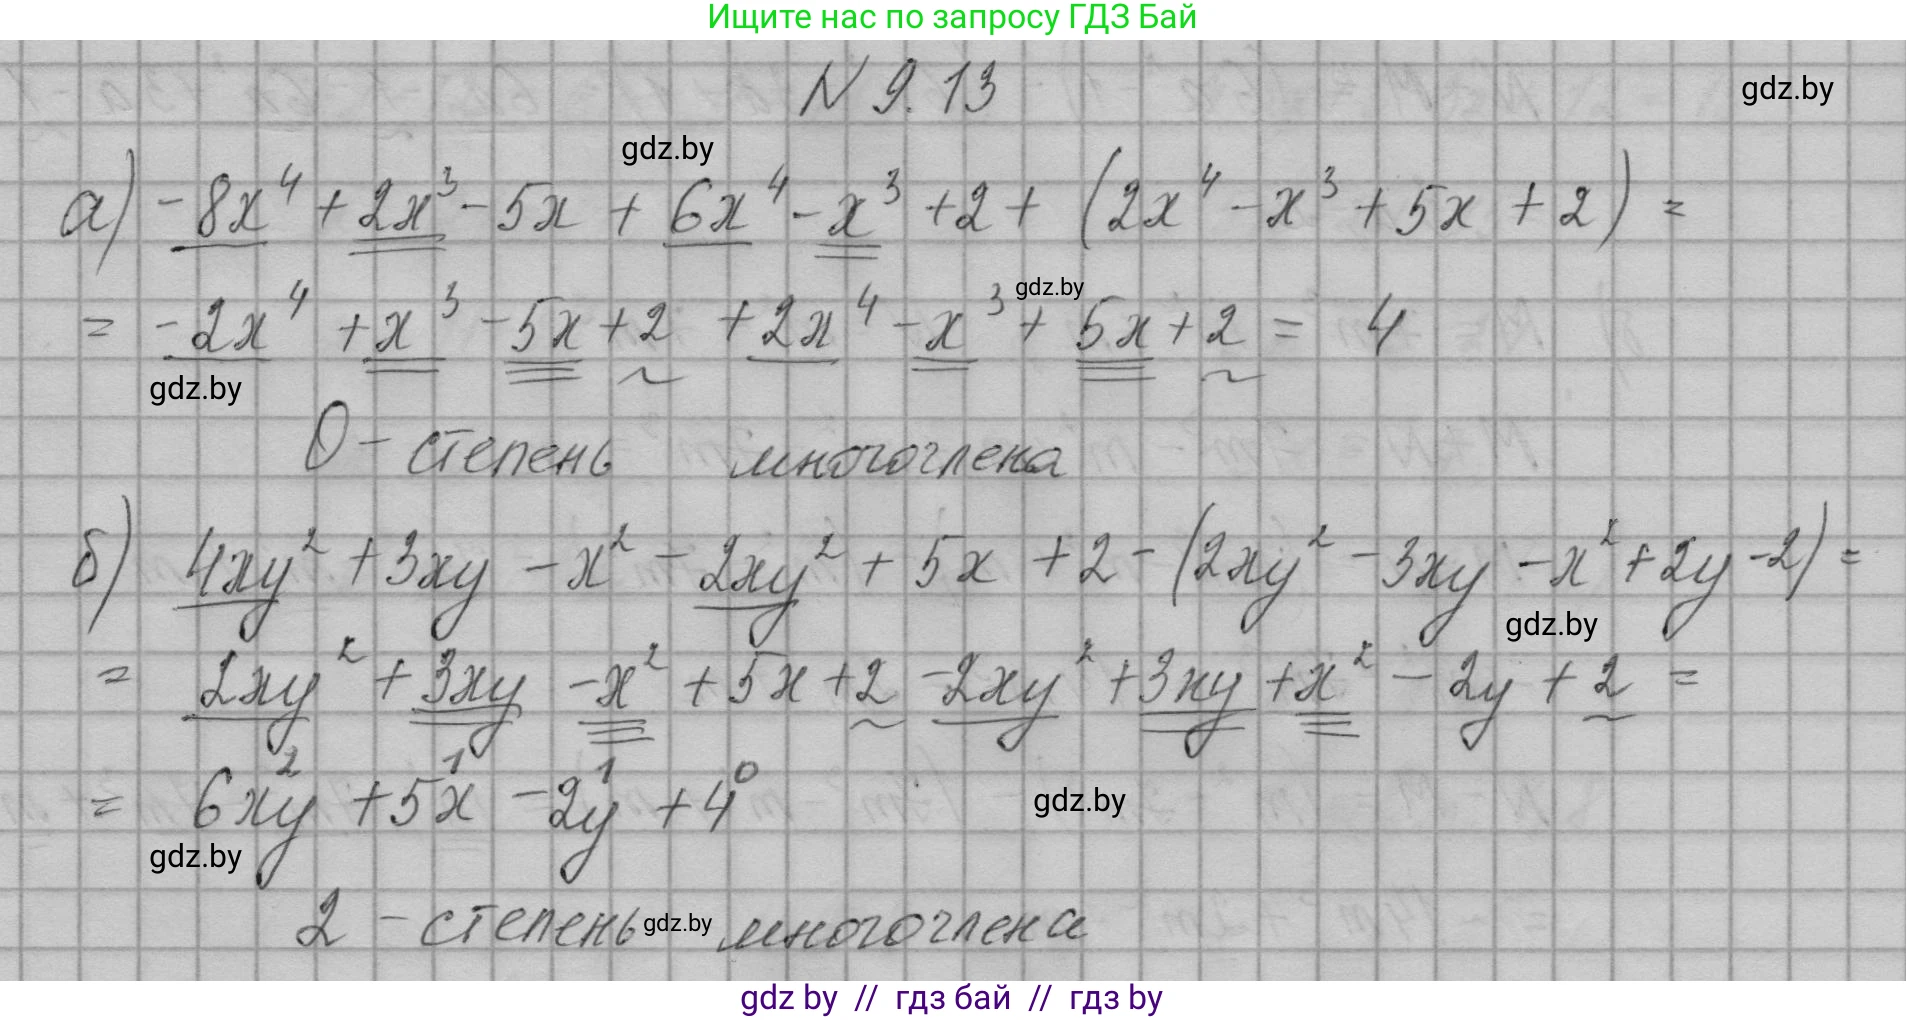 Ищите нас по запросу ГДЗ Бай
N 9.13
gdz.by
gdz.by
а) -8x⁴ + 2x³ - 5x + 6x⁴ - x³ + 2 + (2x⁴ - x³ + 5x + 2) =
gdz.by
= -2x⁴ + x³ - 5x + 2 + 2x⁴ - x³ + 5x + 2 = 4
gdz.by
0 - степень многочлена
б) 4xy² + 3xy - x² - 2xy² + 5x + 2 - (2xy² - 3xy - x² + 2y - 2) =
gdz.by
= 2xy² + 3xy - x² + 5x + 2 - 2xy² + 3xy + x² - 2y + 2 =
= 6xy² + 5x¹ - 2y¹ + 4⁰
gdz.by
gdz.by
2 - степень многочлена
gdz.by
gdz by // гдз бай // гдз by